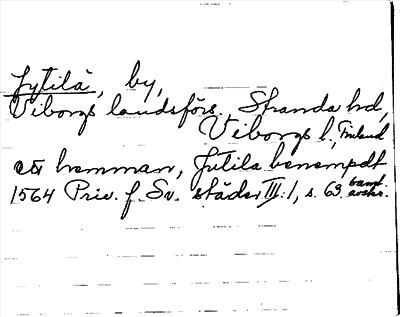 Jytilä, by,
Viborgs landsförs. Stranda hd,
Viborgs l., Finland
ett hemman, Jutila benempdt
1564 Priv. f. Sv. städer III:1, s. 63